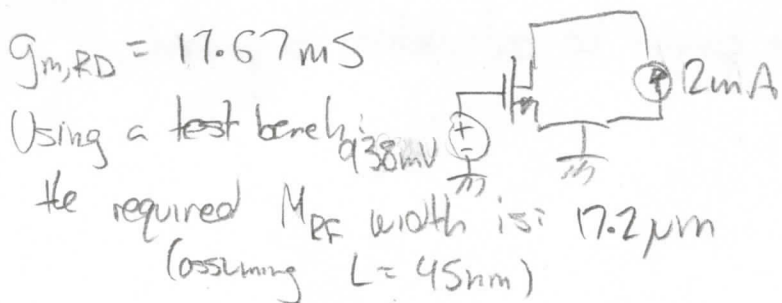 gm,RD = 17.67mS
2mA
Using a test bench:
938mV
the required MRF width is: 17.2μm
(assuming L = 45nm)